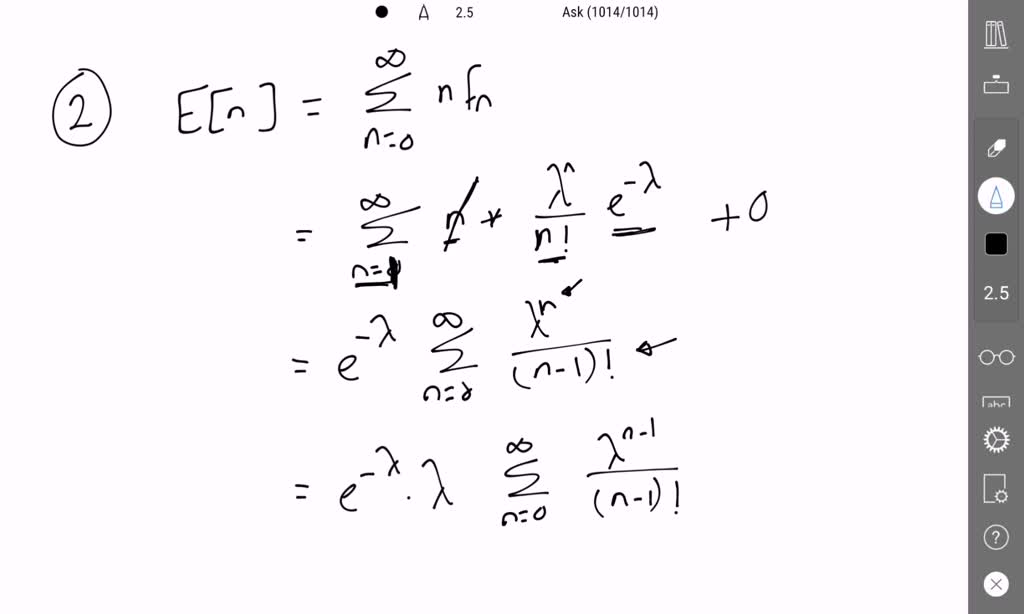 A 2.5 Ask (1014/1014)
② E[n] = ∑_{n=0}^{∞} n fₙ
= ∑_{n=1}^{∞} n * λⁿ/n! e^{-λ} + 0
= e^{-λ} ∑ ∞ λⁿ/(n-1)!
= e^{-λ} · λ ∑_{n=0}^{∞} λ^{n-1}/(n-1)!
2.5
abc
?